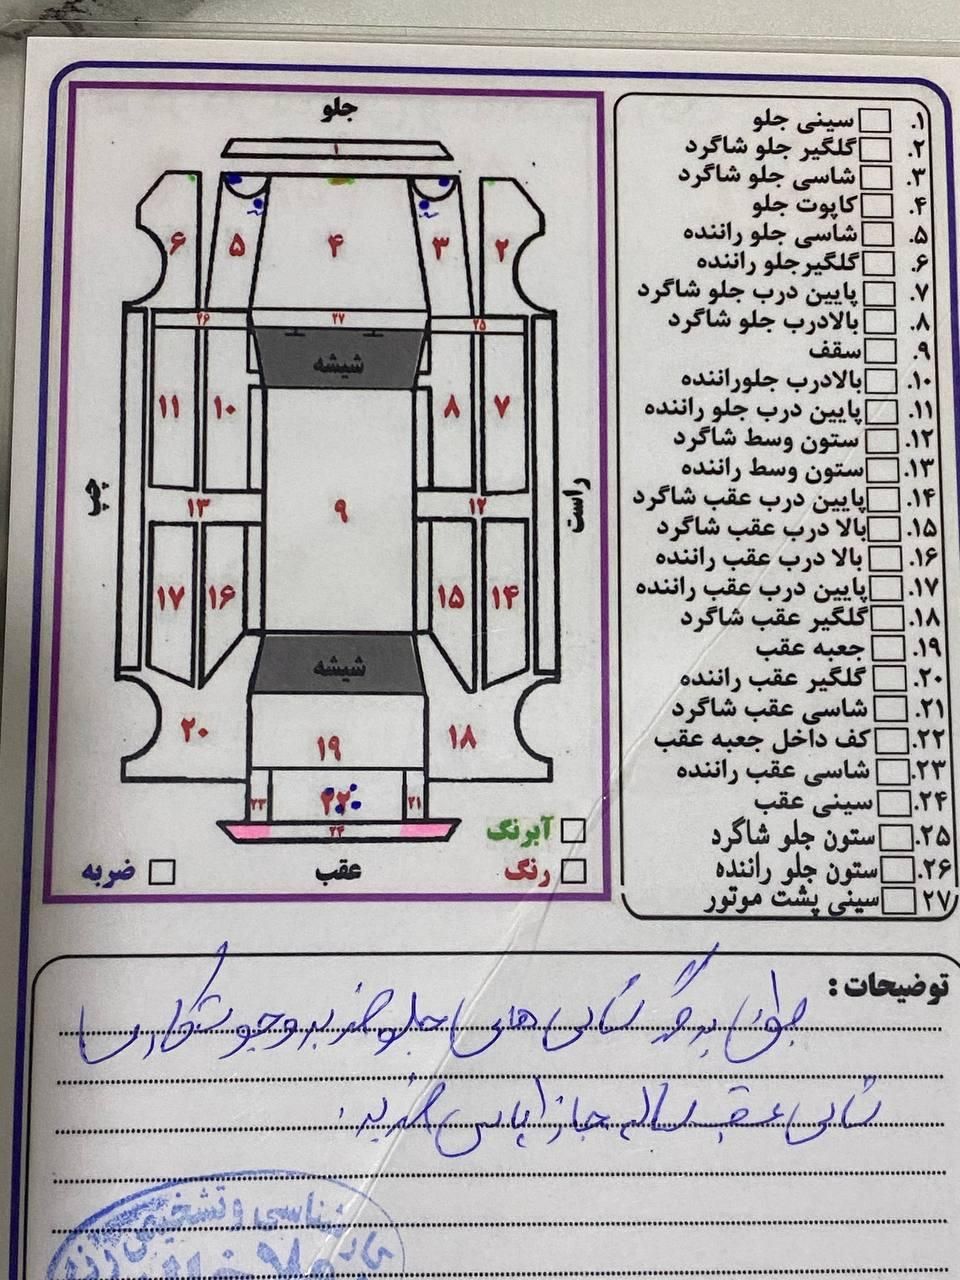 جلو
۱
۶
۵
۴
۳
۲
۲۶
۲۷
۲۵
شیشه
۱۱
۱۰
۸
۷
چپ
راست
۱۳
۹
۱۲
۱۷
۱۶
۱۵
۱۴
شیشه
۲۰
۱۹
۱۸
۲۳
۲۲
۲۱
۲۴
آبرنگ
رنگ
عقب
ضربه
۱. سینی جلو
۲. گلگیر جلو شاگرد
۳. شاسی جلو شاگرد
۴. کاپوت جلو
۵. شاسی جلو راننده
۶. گلگیرجلو راننده
۷. پایین درب جلو شاگرد
۸. بالادرب جلو شاگرد
۹. سقف
۱۰. بالادرب جلوراننده
۱۱. پایین درب جلو راننده
۱۲. ستون وسط شاگرد
۱۳. ستون وسط راننده
۱۴. پایین درب عقب شاگرد
۱۵. بالا درب عقب شاگرد
۱۶. بالا درب عقب راننده
۱۷. پایین درب عقب راننده
۱۸. گلگیر عقب شاگرد
۱۹. جعبه عقب
۲۰. گلگیر عقب راننده
۲۱. شاسی عقب شاگرد
۲۲. کف داخل جعبه عقب
۲۳. شاسی عقب راننده
۲۴. سینی عقب
۲۵. ستون جلو شاگرد
۲۶. ستون جلو راننده
۲۷ سینی پشت موتور
توضیحات :
شاسی های جلو ضربه و جوشکاری
شاسی عقب سالم جازاپاس ضربه
شناسی و تشخیص رنگ